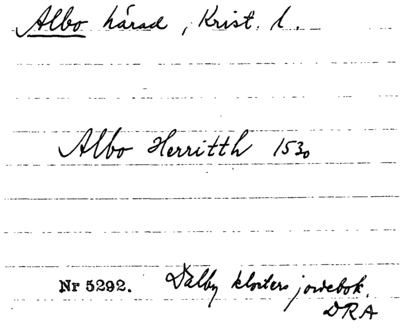 Albo härad, Krist. l.
Albo Herritth 1530
Nr 5292. Dalby klosters jordebok.
DRA